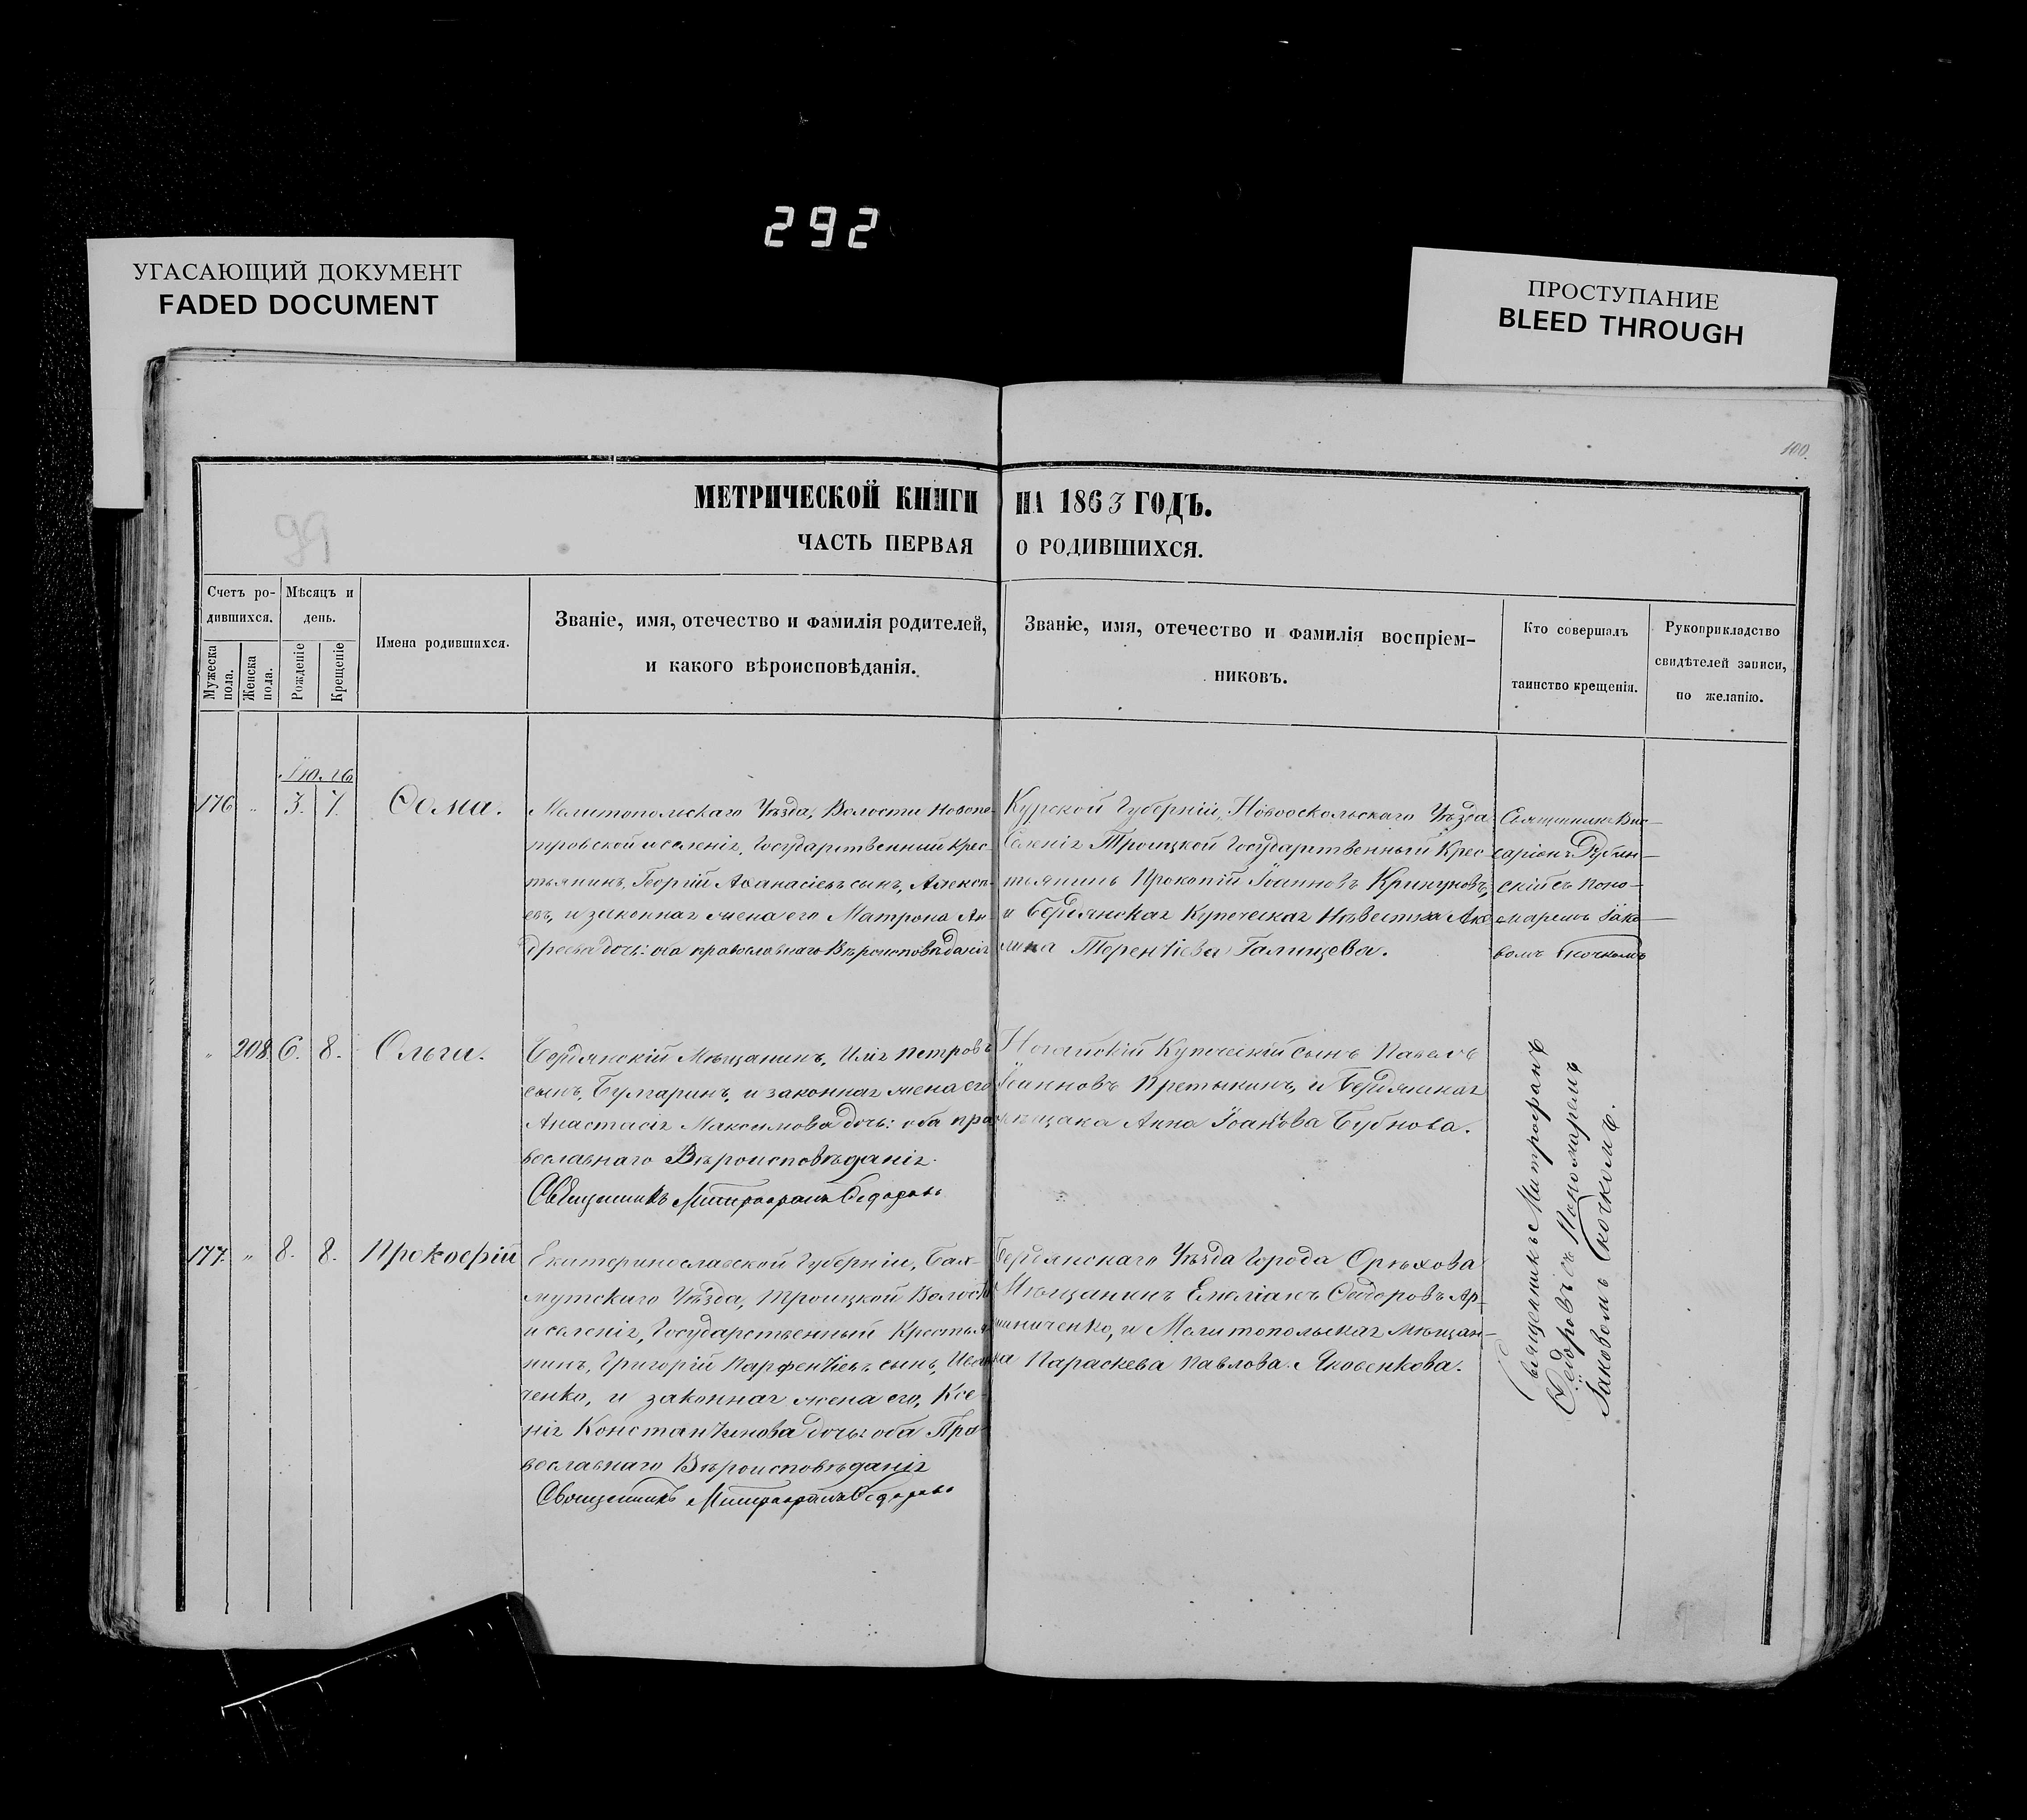 292
УГАСАЮЩИЙ ДОКУМЕНТ
FADED DOCUMENT
ПРОСТУПАНИЕ
BLEED THROUGH
100.
99
МЕТРИЧЕСКОЙ КНИГИ НА 1863 ГОДЪ.
ЧАСТЬ ПЕРВАЯ О РОДИВШИХСЯ.
Счетъ ро-
дившихся.
Мужеска пола.
Женска пола.
Мѣсяцъ и
день.
Рожденіе
Крещеніе
Имена родившихся.
Званіе, имя, отечество и фамилія родителей,
и какого вѣроисповѣданія.
Званіе, имя, отечество и фамилія воспріем-
никовъ.
Кто совершалъ
таинство крещенія.
Рукоприкладство
свидѣтелей записи,
по желанію.
176 " 3. 7. Ѳома.
Мелитопольскаго Уѣзда, Волости Новопе-
тровской и селенія, Государственный Крес-
тьянинъ, Георгій Аѳанасіевъ сынъ, Алексѣ-
евъ, и законная жена его Матрона Ан-
дреева дочь: оба православнаго Вѣроисповѣданія
Курской Губерніи, Новооскольскаго Уѣзда
Селенія Троицкой Государственный Крес-
тьянинъ Прокопій Іоанновъ Крикуновъ,
и Бердянская Купеческая Невестка Аку-
лина Терентіева Галищева.
Священникъ Вис-
саріонъ
скій съ Поно-
маремъ Іако-
вомъ Скочкомъ
" 208. 6. 8. Ольга.
Бердянскій Мѣщанинъ, Илія Петровъ
сынъ, Булгаринъ, и законная жена его
Анастасія Максимова дочь: оба пра-
вославнаго Вѣроисповѣданія.
Священникъ Митрофанъ Ѳедоровъ
Ногайскій Купеческій сынъ Павелъ
Іоанновъ Претыкинъ, и Бердянская
мѣщанка Анна Іоанова Бубнова.
177. " 8. 8. Прокофій
Екатеринославской Губерніи, Бах-
мутскаго Уѣзда, Троицкой Волости
и селенія, Государственный Крестья-
нинъ, Григорій Парфентіевъ сынъ, Иван-
ченко, и законная жена его, Ксе-
нія Константинова дочь: оба Пра-
вославнаго Вѣроисповѣданія
Священникъ Митрофанъ Ѳедоровъ
Бердянскаго Уѣзда Города Орѣхова
Мѣщанинъ Емеліанъ Ѳедоровъ Ар-
и Мелитопольская мѣщан-
ка Параскева Павлова Яковенкова.
Священникъ Митрофанъ
Ѳедоровъ съ Пономаремъ
Іаковомъ Скочкомъ.